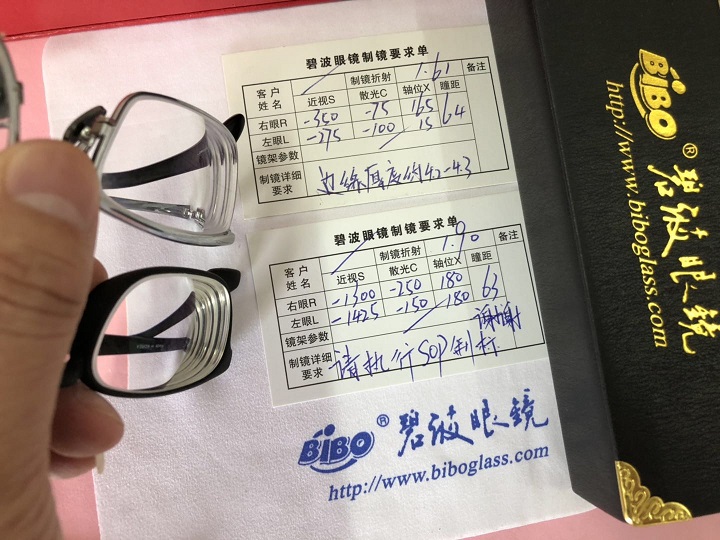 碧波眼镜制镜要求单
客户姓名 制镜折射 1.61 备注
近视S 散光C 轴位X 瞳距
右眼R -350 -75 165 64
左眼L -275 -100 15
镜架参数
制镜详细要求 边缘厚度约4.2-4.3
碧波眼镜制镜要求单
客户姓名 制镜折射 1.90 备注
近视S 散光C 轴位X 瞳距
右眼R -1300 -250 180 63
左眼L -1425 -150 180
镜架参数
制镜详细要求 请执行SOP制标 谢谢
BiBO ® 碧波眼镜
http://www.biboglass.com
BiBO ® 碧波眼镜
http://www.biboglass.com